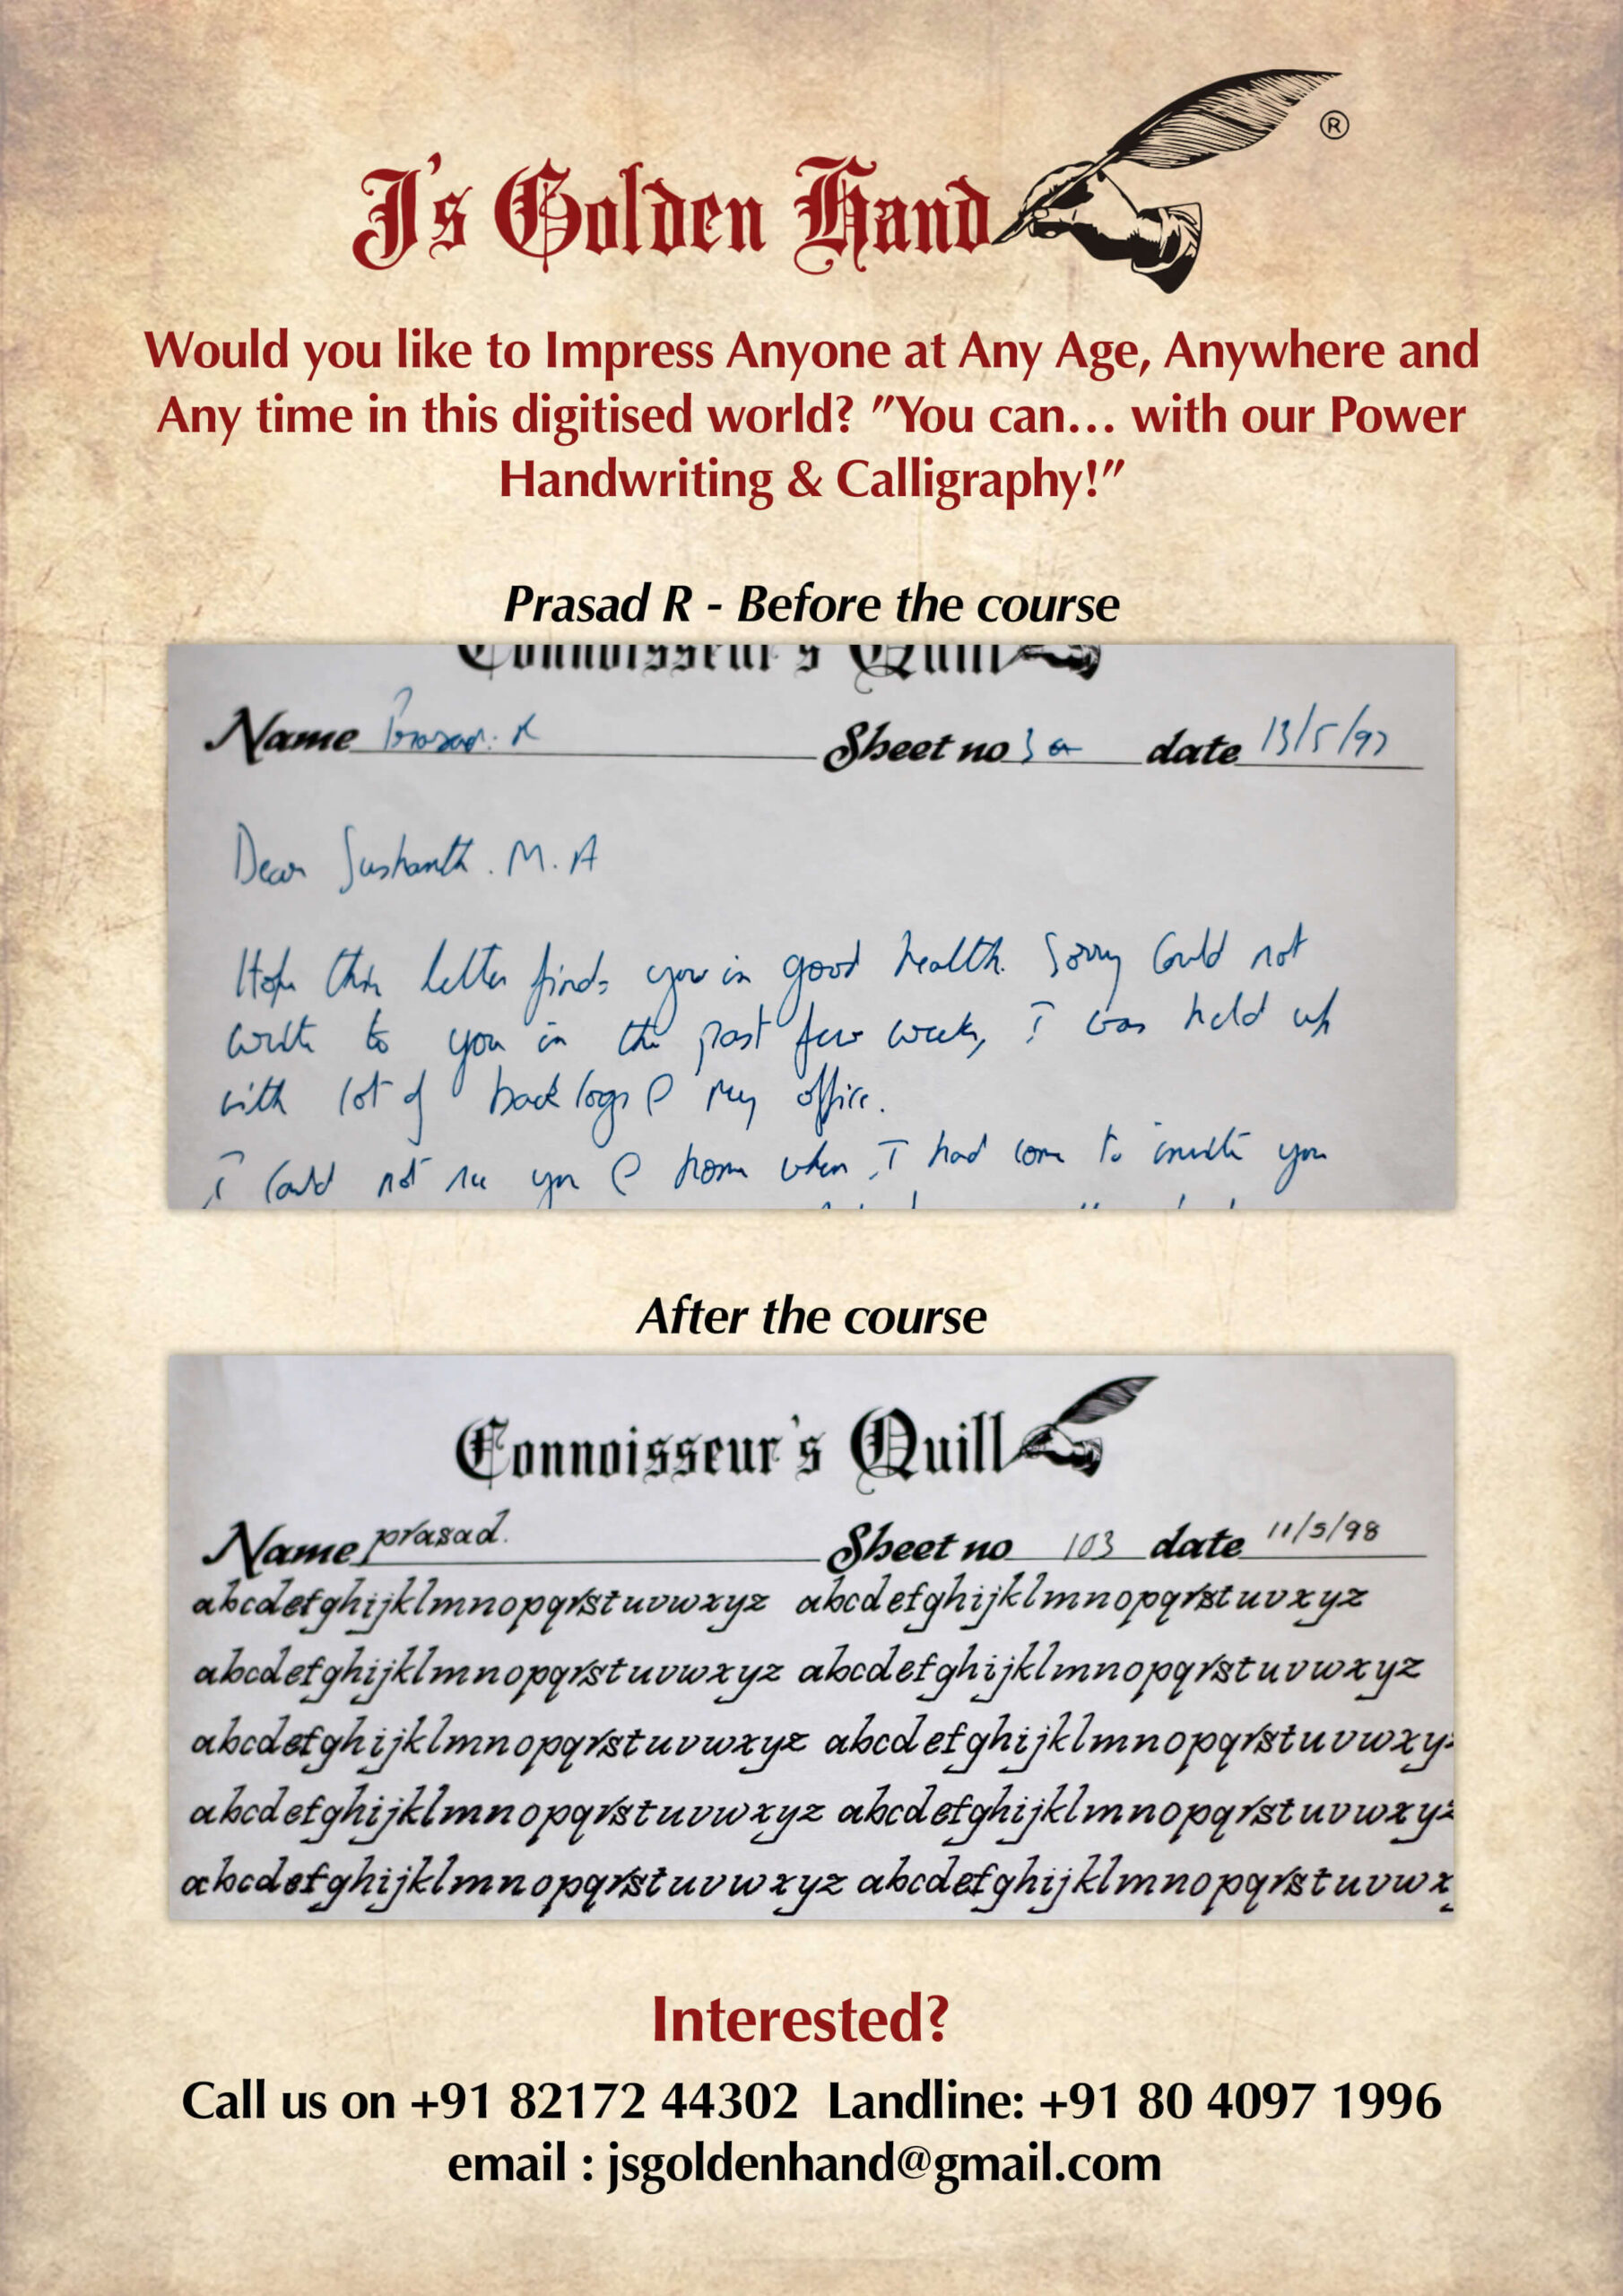 J's Golden Hand ®
Would you like to Impress Anyone at Any Age, Anywhere and
Any time in this digitised world? "You can... with our Power
Handwriting & Calligraphy!"
Prasad R - Before the course
Connoisseur's Quill
Name Prasad. R Sheet no date 13/5/97
Dear Sushanth. M. A
Hope this letter finds you in good health. Sorry Could not
write to you in the past few weeks, I was held up
with lot of back logs @ my office.
I Could not see you @ home when I had come to invite you
After the course
Connoisseur's Quill
Name prasad. Sheet no 103 date 11/5/98
abcdefghijklmnopqrstuvwxyz abcdefghijklmnopqrstuvxyz
abcdefghijklmnopqrstuvwxyz abcdefghijklmnopqrstuvwxyz
abcdefghijklmnopqrstuvwxyz abcdefghijklmnopqrstuvwxyz
abcdefghijklmnopqrstuvwxyz abcdefghijklmnopqrstuvwxyz
abcdefghijklmnopqrstuvwxyz abcdefghijklmnopqrstuvwx
Interested?
Call us on +91 82172 44302 Landline: +91 80 4097 1996
email : jsgoldenhand@gmail.com